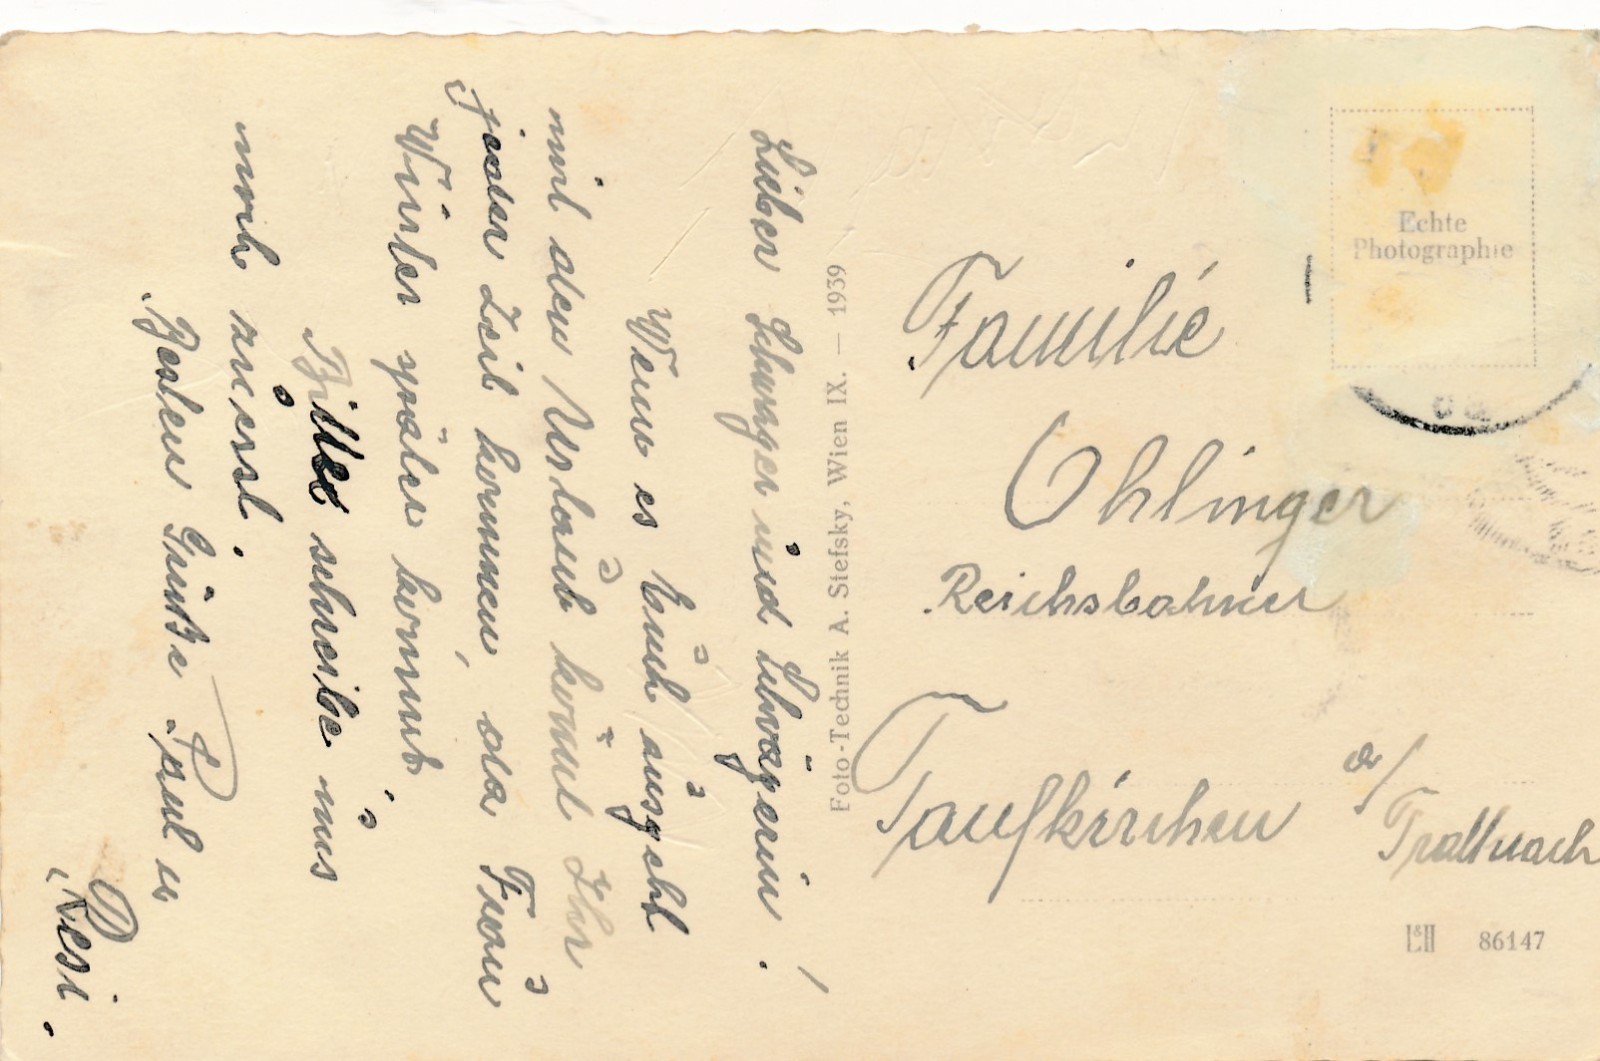 Lieber Schwager und Schwägerin!
Wenn es Euch ausgeht
mit den Urlaub könnt Ihr
jeder Zeit kommen, da Frau
Winter später kommt.
Bitte schreibe uns
noch zuerst.
Besten Grüße Paul u
Resi.
Foto-Technik A. Stefsky, Wien IX. — 1939
Echte
Photographie
Familie
Ohlinger
Reichsbahner
Taufkirchen a/
Trattnach
L&H 86147